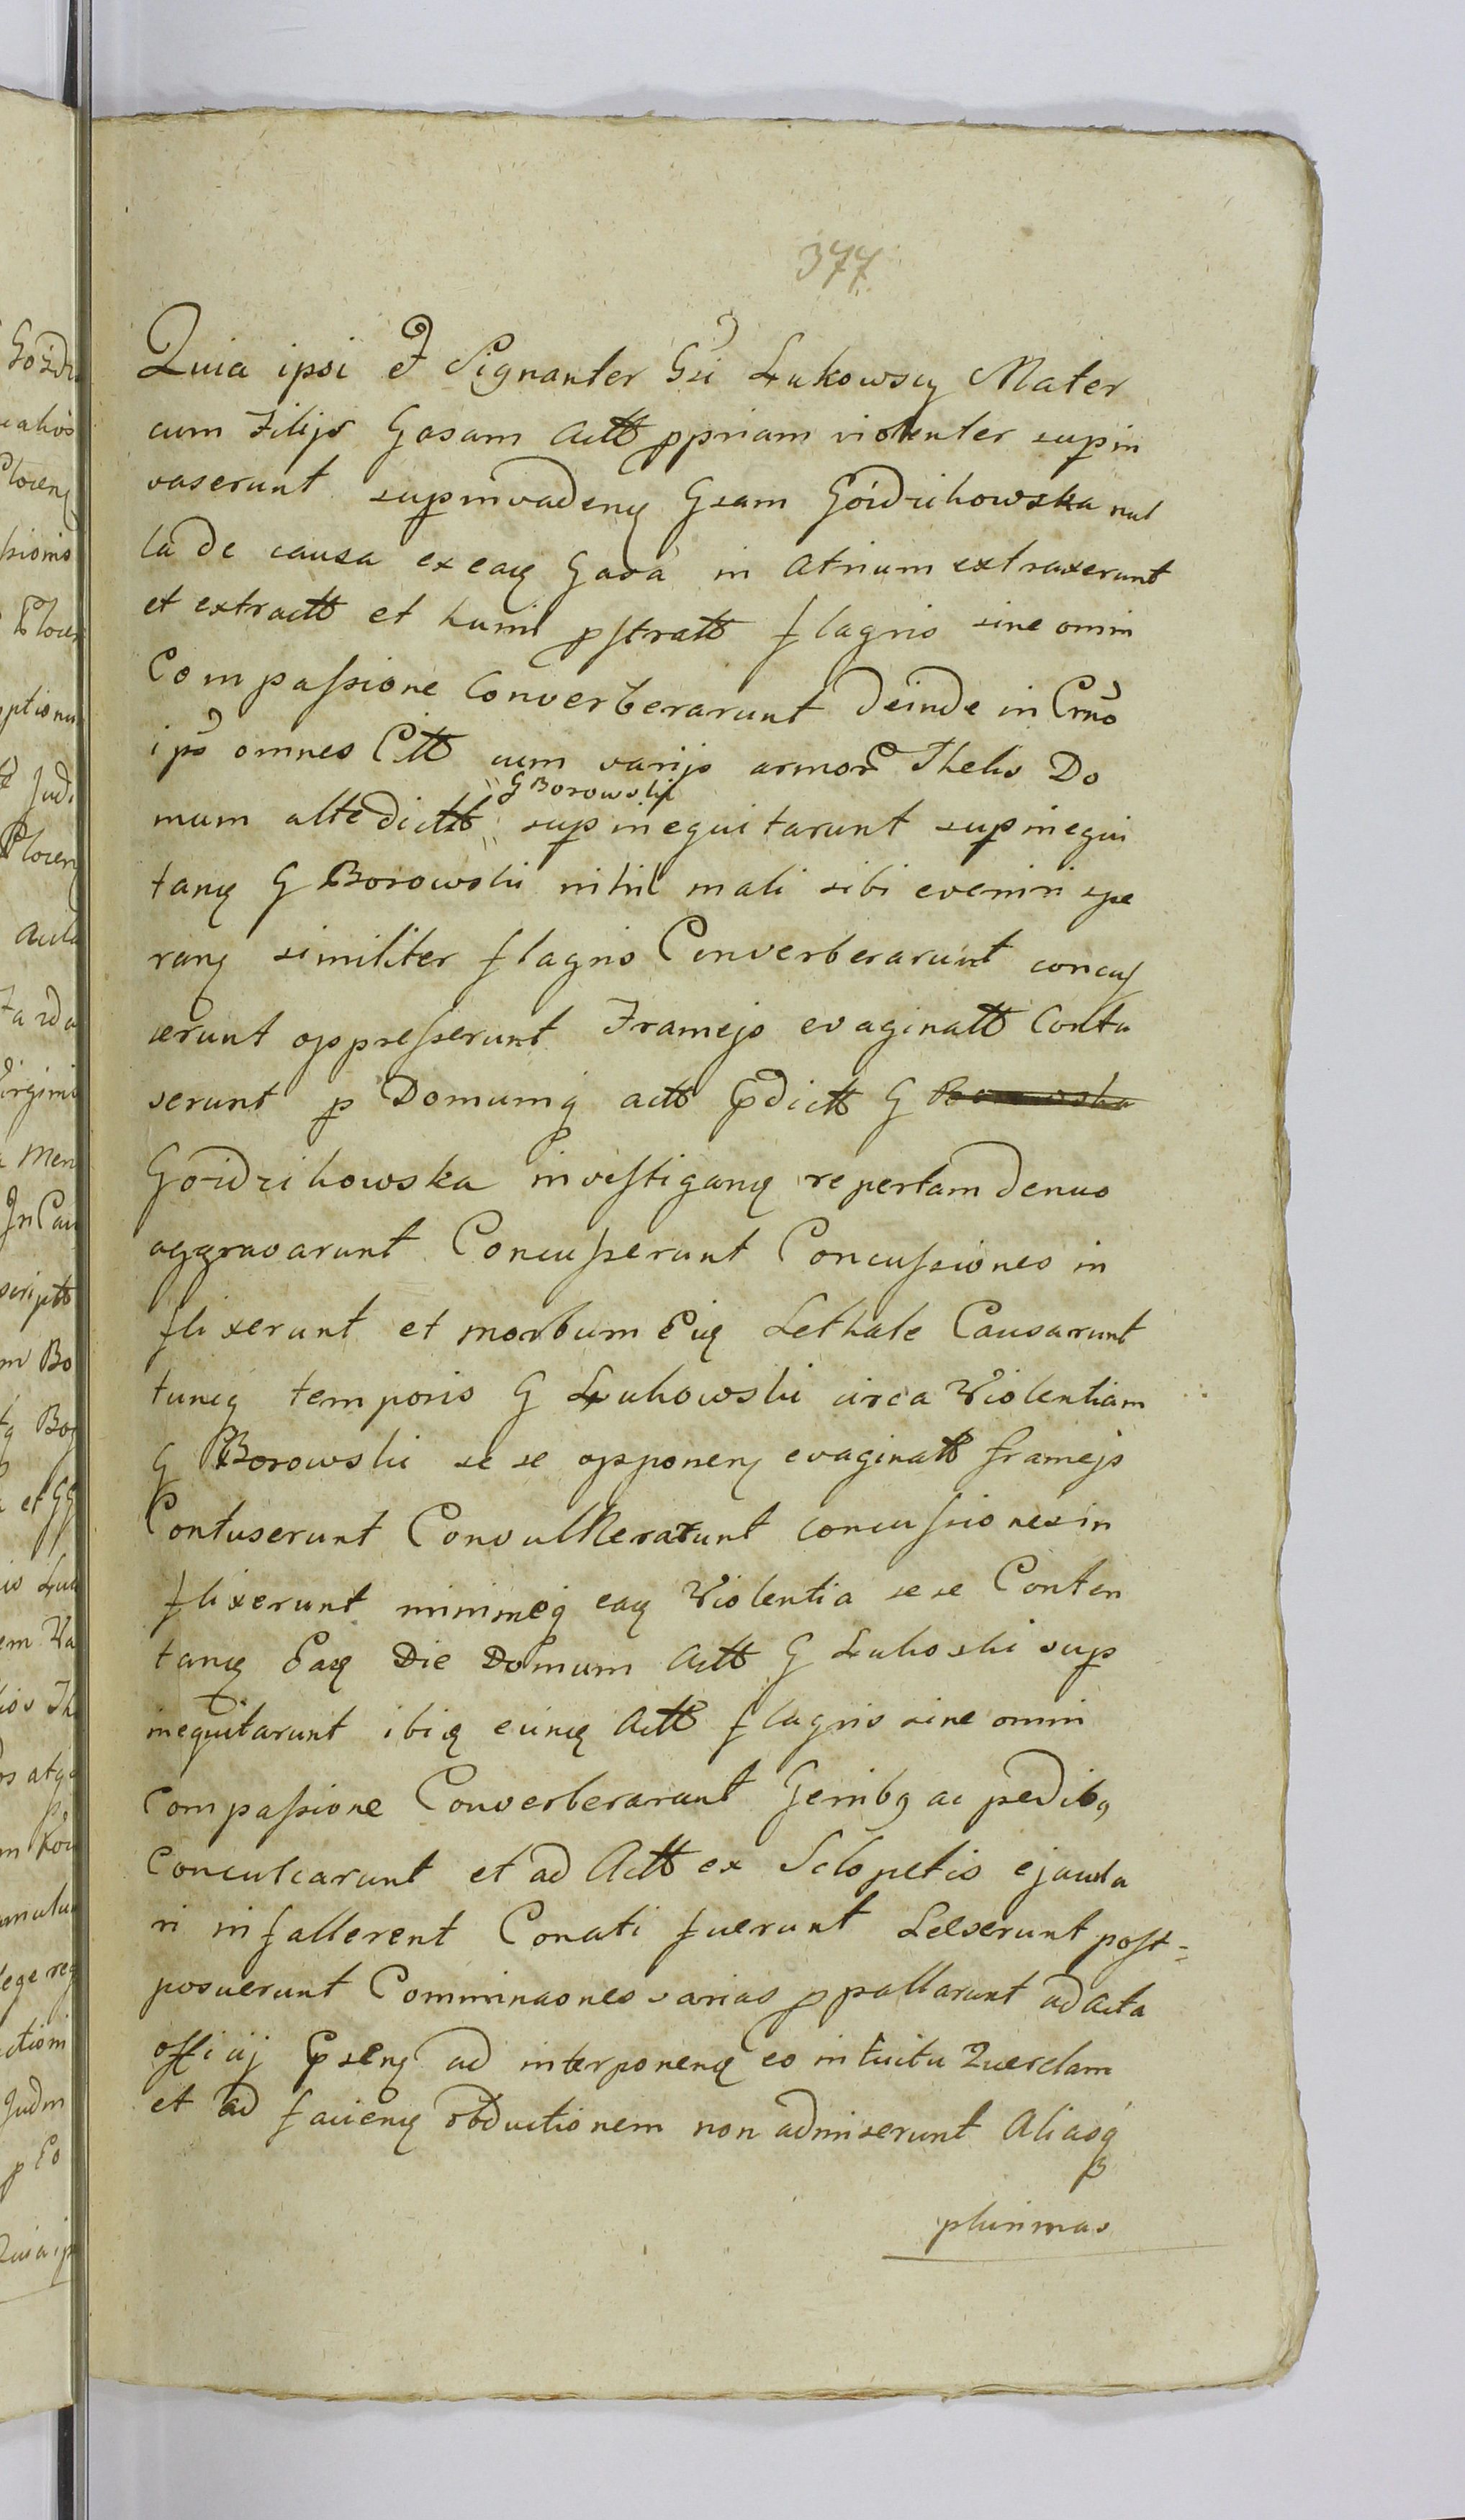 377
Quia ipsi & Signanter Gsi Łukowscy Mater
cum Filijs Gasam Actt ppriam violenter supin
vaserunt supinvadenq Gsam Gozdzikowska nul
la de causa ex eaq Gasa in atrium extraxerunt
et extractt et humi pstratt flagris sine omni
Compassione Converberarunt deinde in Crno
ipo omnes Citt cum varijs armor Thelis Do
G Borowski
mum attedictt supinequitarunt supinequi
tanq G Borowski nihil mali sibi eveniri spe
ranq similiter flagris Converberarunt concus
serunt oppresserunt Framejs evaginatt Contu
serunt p Domumq actt pdictt G
Gozdzikowska investiganq repertam denuo
aggravarunt Concusserunt Concussiones in
flixerunt et morbum Eiq Lethale Causarunt
tuncq temporis G Łukowski circa Violentiam
G Borowski se se opponenq evaginatt framejs
Contuserunt Convulnerarunt concussiones in
flixerunt minimeq eaq Violentia se se Conten
tanq Eaq Die Domum Actt G Łukoski sup
inequitarunt ibiq euncq Actt flagris sine omni
compassione Converberarunt Genibq ac pedibq
conculcarunt et ad Actt ex Sclopetis ejacula
ri ni fallerent Conati fuerunt Leeserunt post=
posuerunt Comminaones varias ppallarunt ad acta
officij Psenq ad interponenq eo intuitu Querelam
et ad facienq obductionem non admiserunt Aliasq
plurimas
Gozdz
Plocen
Plocen
Judi
Plocen
acta
Virgini
Men
In Cau
script
m Bo
et GG
em Va
atq
lege reg
Judm
p Eo
Quia ip